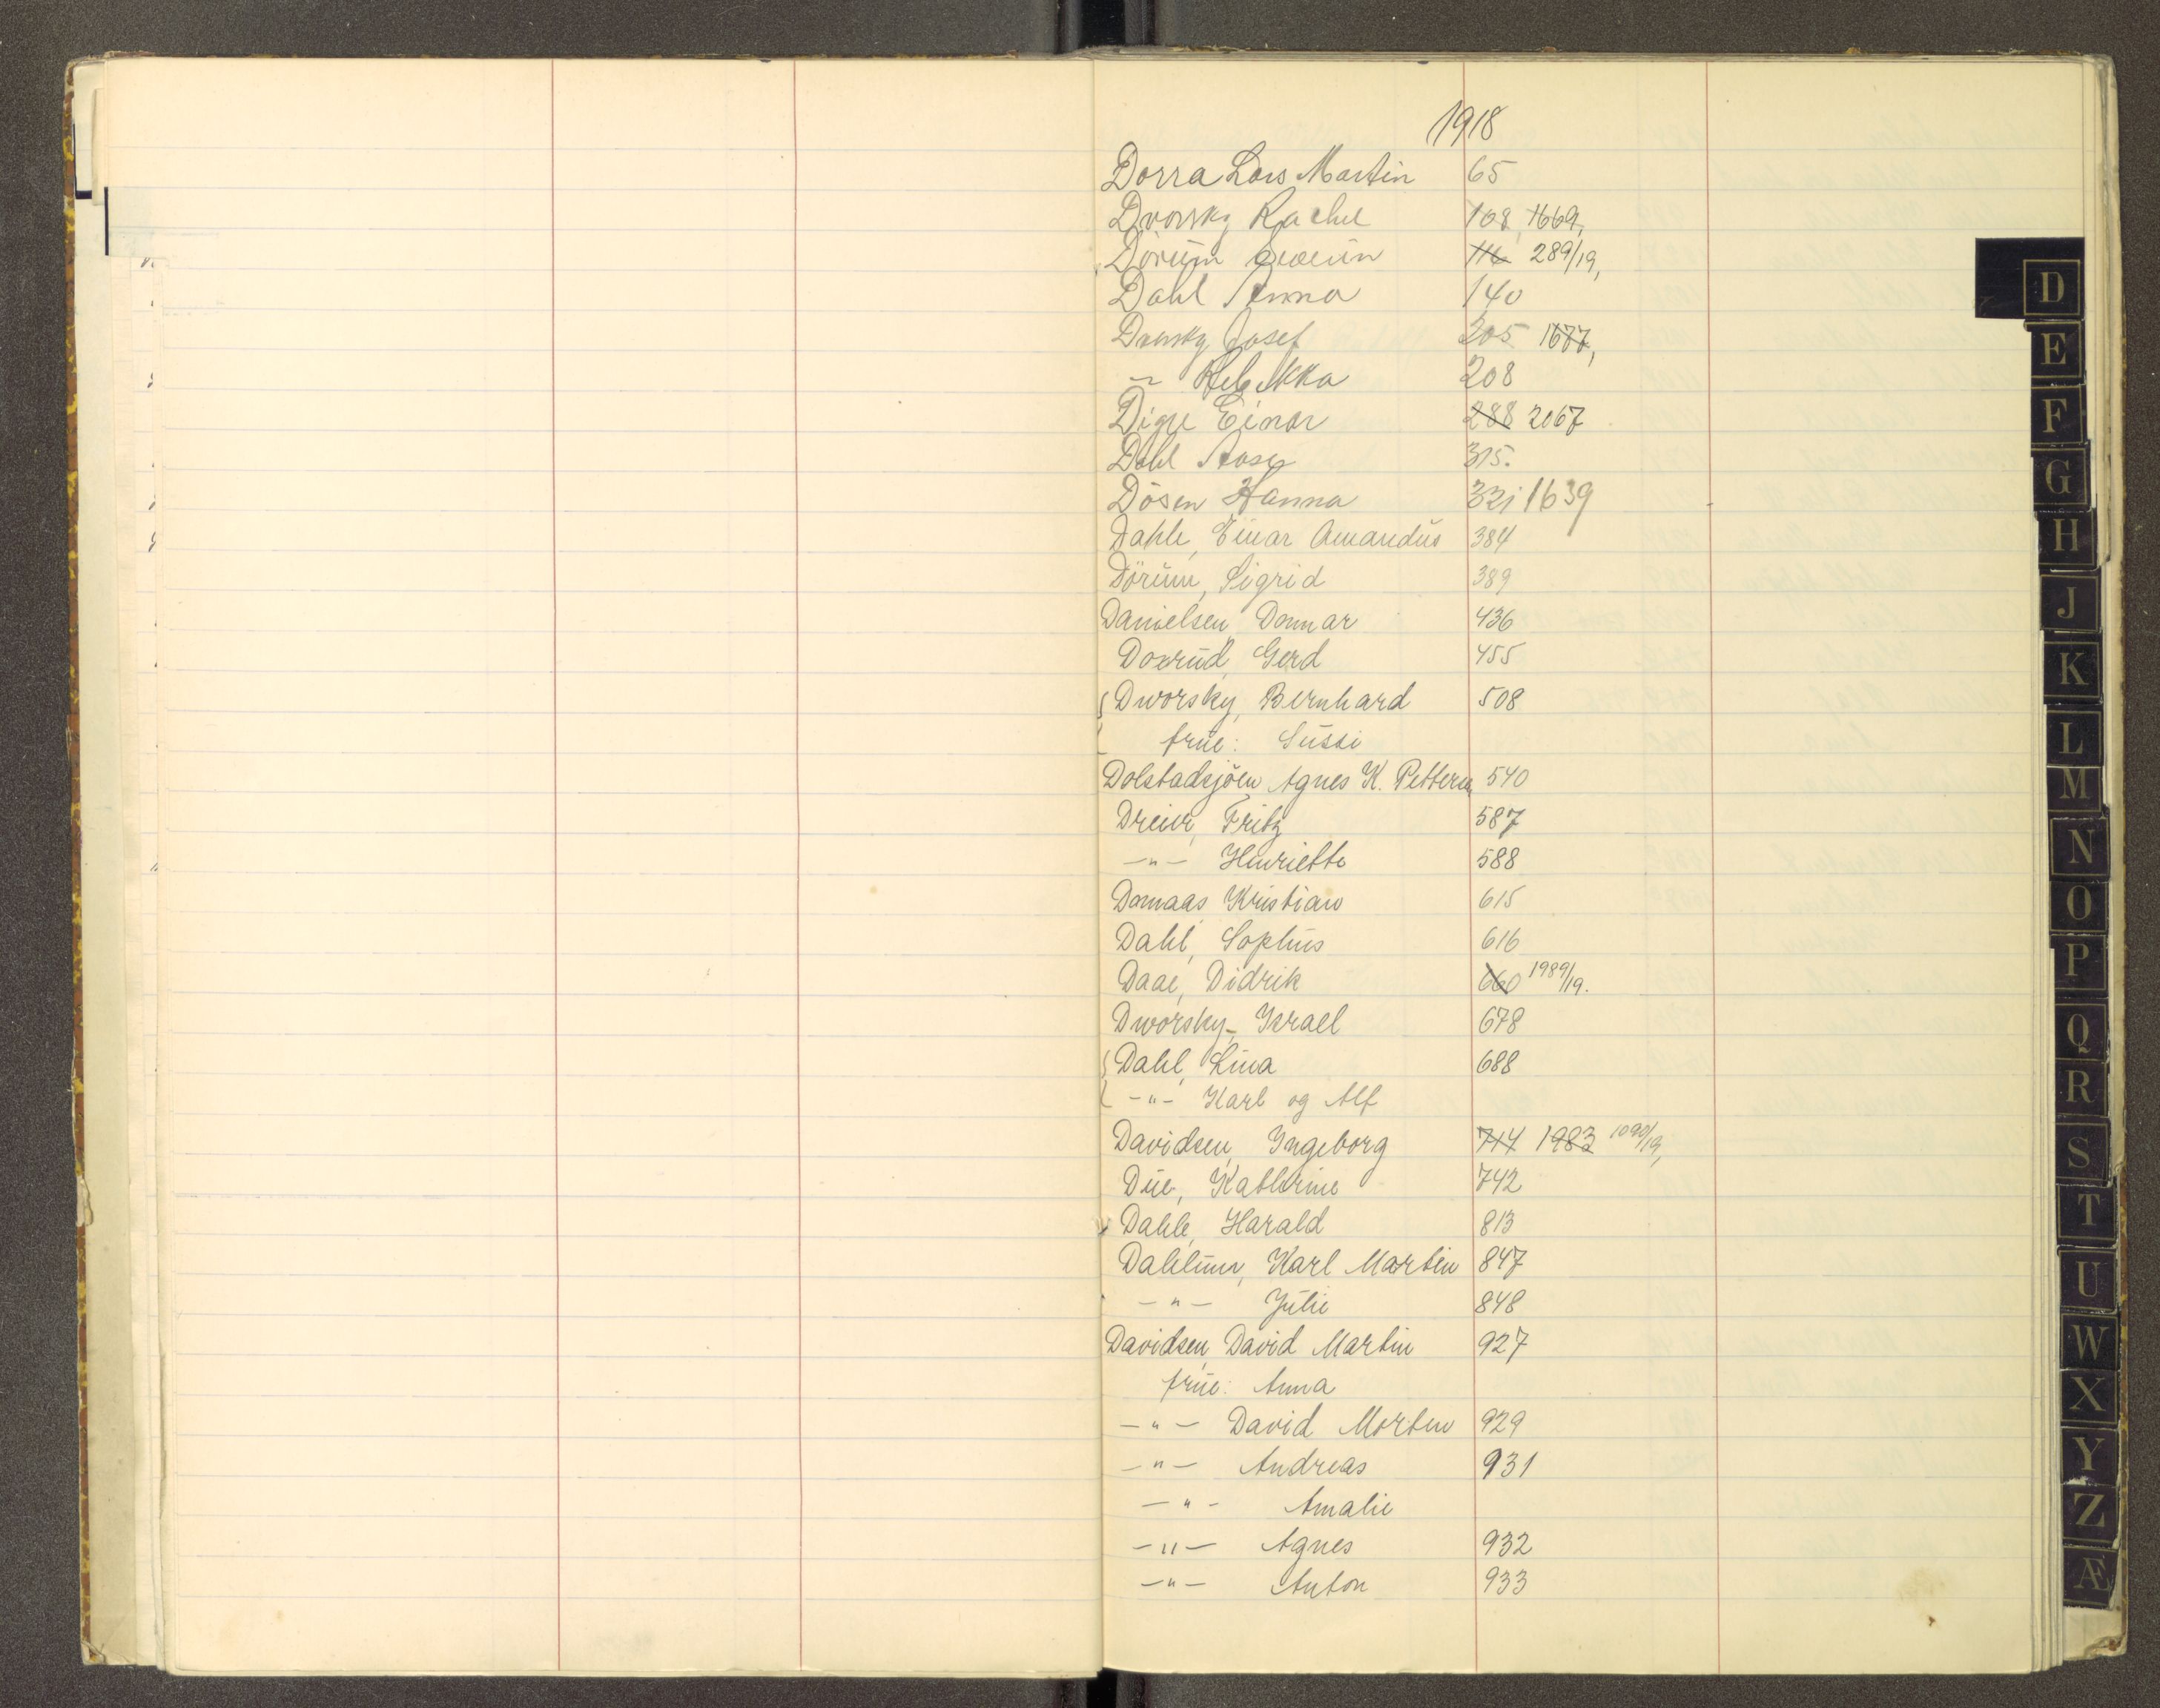 1918
Dorra Lars Martin 65
Dvorsky Rachel 108, 1669,
Dörum 116 289/19,
Dahl Anna 140
Dvorsky Josef 205 1677,
-"- Rebekka 208
Digre Einar 288 2067
Dahl Aase 315.
Dösen Hanna 321 1639
Dahle, Einar Amandus 384
Dörum, Sigrid 389
Danielsen, Donnar 436
Doxrud, Gerd 455
Dworsky, Bernhard 508
frue: Sussi
Dolstadsjöen, Agnes K. Pettersen 540
Dreier, Fritz 587
-"- Henriette 588
Domaas Kristian 615
Dahl, Sophus 616
Daae, Didrik 660 1989/19.
Dworsky, Israel 678
Dahl, Lina 688
-"- Karl og Alf
Davidsen, Ingeborg 714 1983 1090/19,
Due, Kathrine 742
Dahle, Harald 813
Dahlum, Karl Martin 847
-"- Julie 848
Davidsen, David Martin 927
frue: Anna
-"- David Morten 929
-"- Andreas 931
-"- Amalie
-"- Agnes 932
-"- Anton 933
D
E
F
G
H
J
K
L
M
N
O
P
Q
R
S
T
U
W
X
Y
Z
Æ